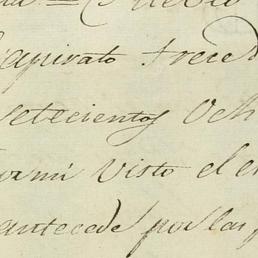 Pueblo
apirato trece d
setecientos Och
or mi visto el e
antecede por las